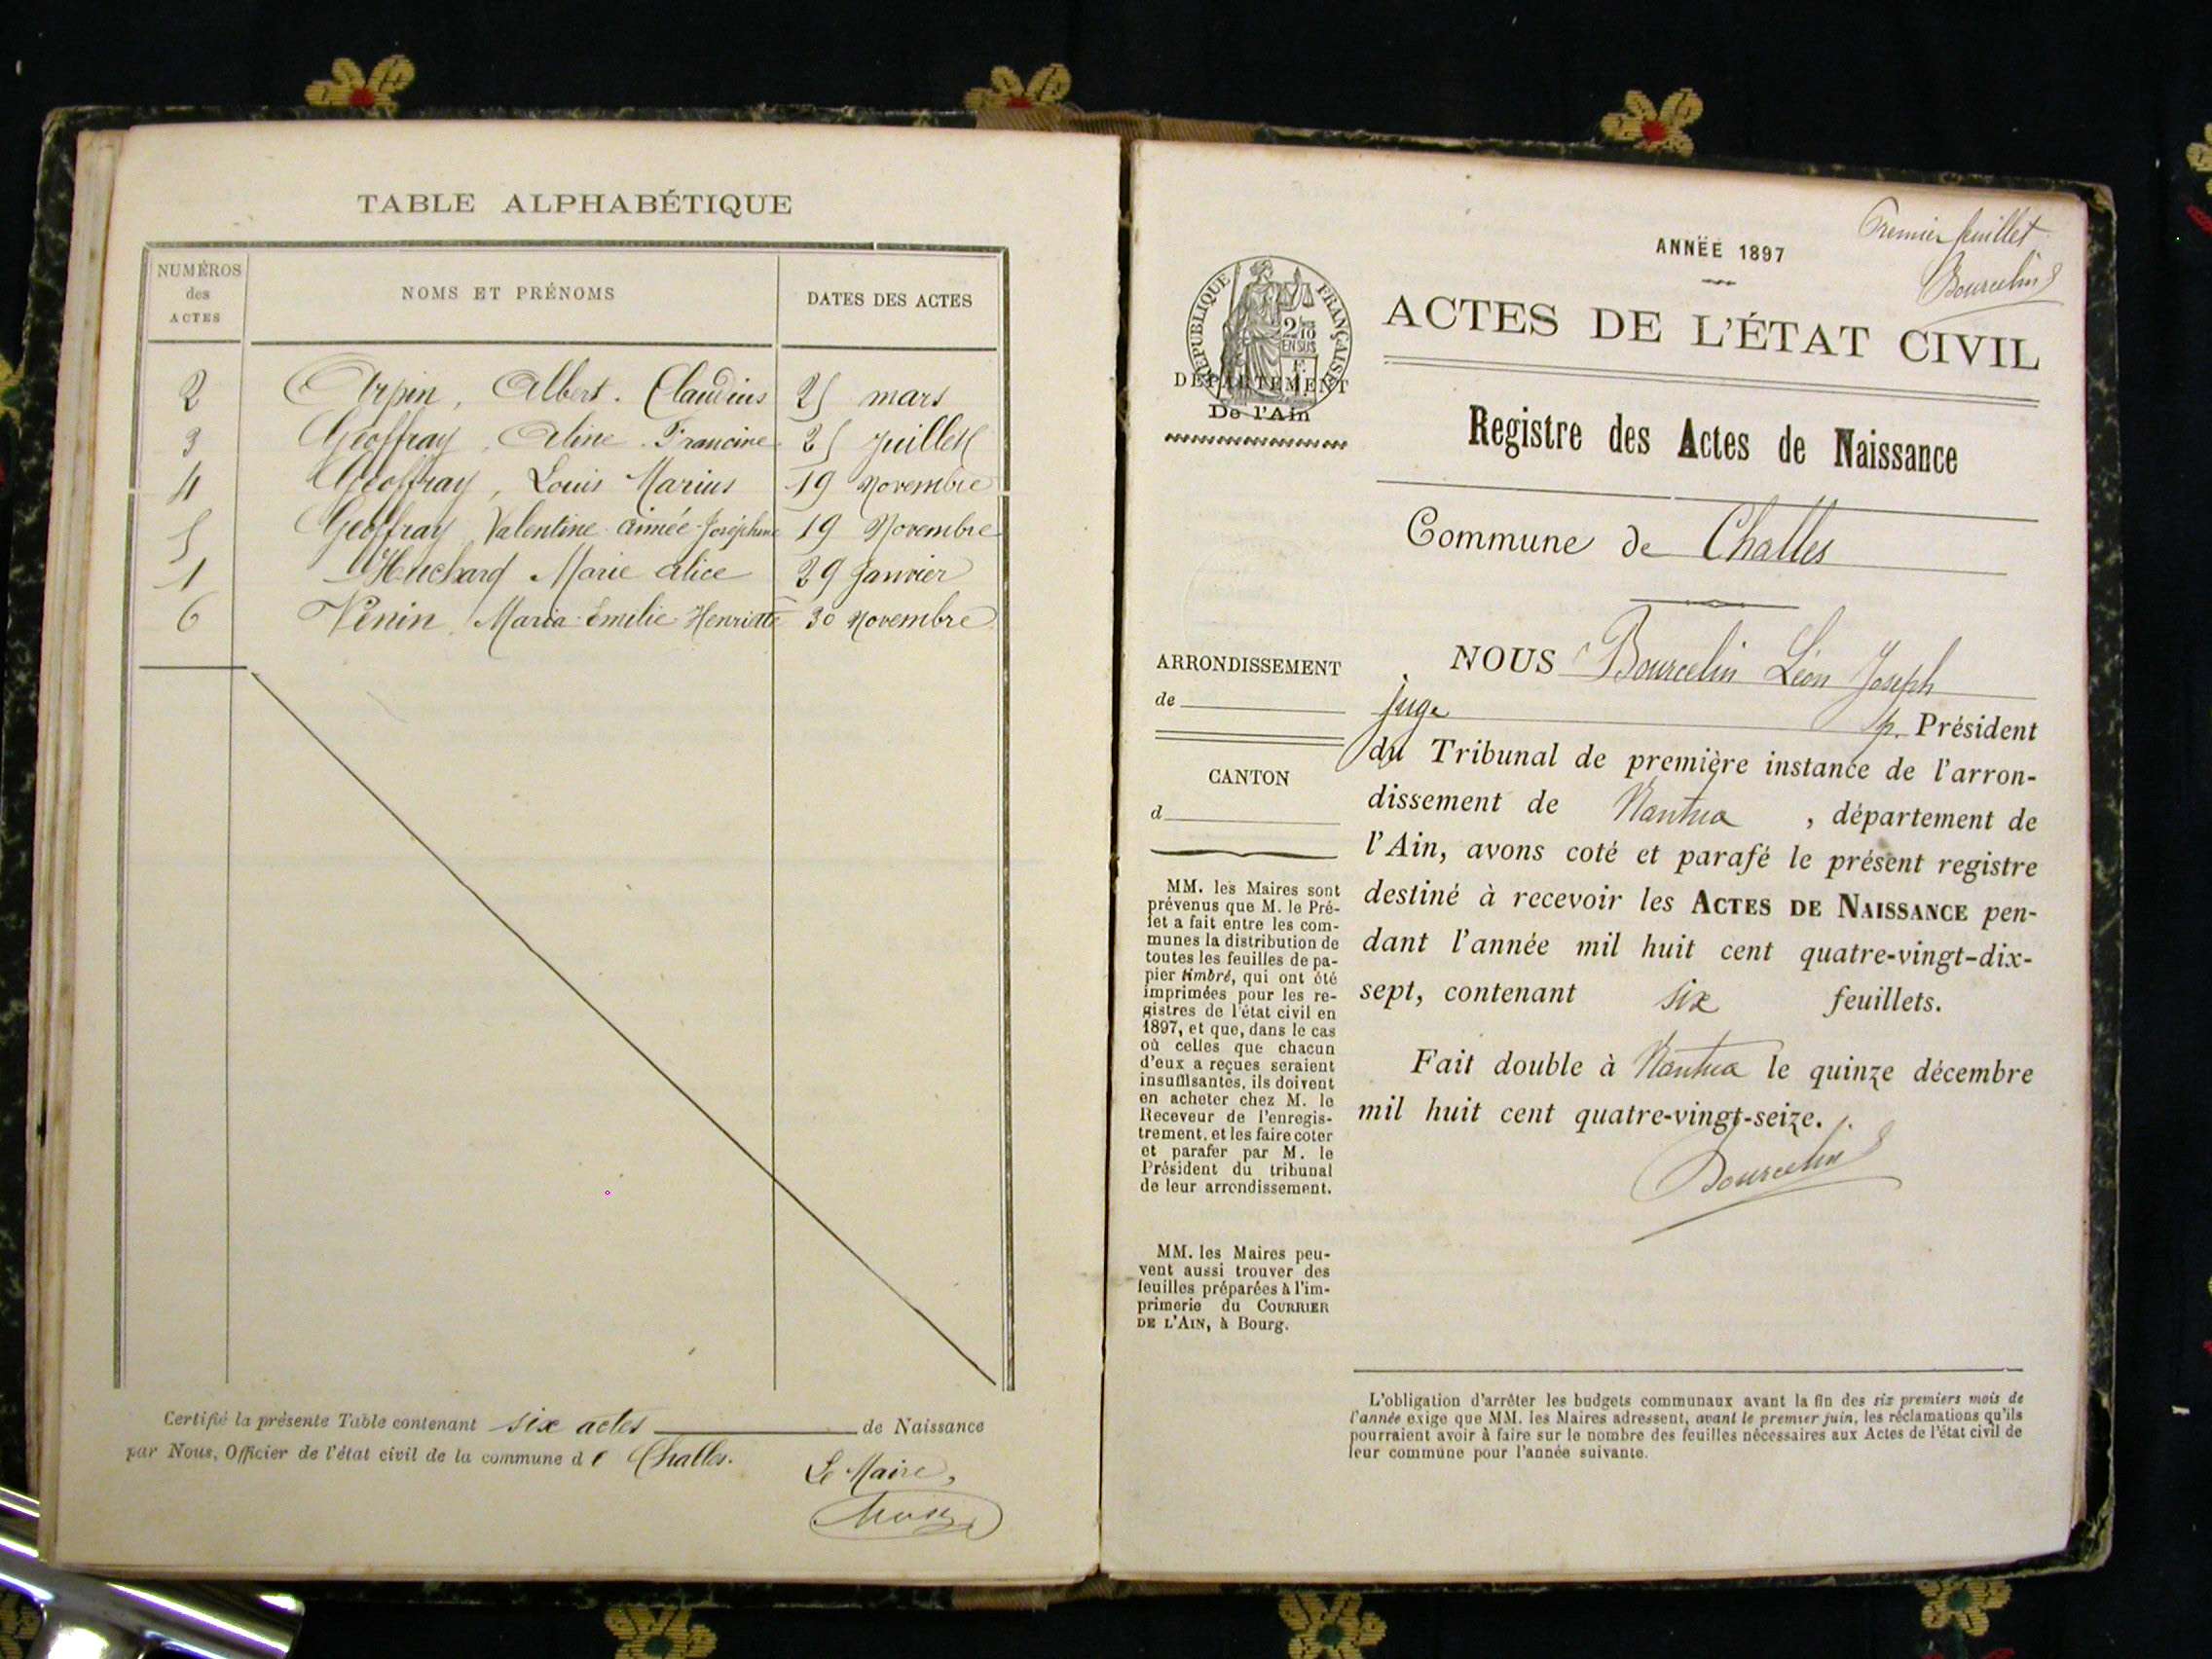 TABLE ALPHABÉTIQUE
NUMÉROS des ACTES NOMS ET PRÉNOMS DATES DES ACTES
2 Arpin, Albert. Claudius 25 mars
3 Geoffray, Aline. Francine 25 Juillet
4 Geoffray, Louis Marius 19 Novembre
5 Geoffray Valentine aimée Joséphine 19 Novembre
1 Huchard Marie alice 29 Janvier
6 Venin, Maria Emilie Henriette 30 Novembre
Certifié la présente Table contenant six actes de Naissance
par Nous, Officier de l'état civil de la commune de Challes.
Le Maire,
Premier feuillet
Bourcelin
ANNÉE 1897
RÉPUBLIQUE FRANÇAISE
2/10
EN SUS
DÉPARTEMENT
De l'Ain
ACTES DE L'ÉTAT CIVIL
Registre des Actes de Naissance
Commune de Challes
ARRONDISSEMENT
de
CANTON
d
MM. les Maires sont
prévenus que M. le Pré-
fet a fait entre les com-
munes la distribution de
toutes les feuilles de pa-
pier timbré, qui ont été
imprimées pour les re-
gistres de l'état civil en
1897, et que, dans le cas
où celles que chacun
d'eux a reçues seraient
insuffisantes, ils doivent
en acheter chez M. le
Receveur de l'enregis-
trement, et les faire coter
et parafer par M. le
Président du tribunal
de leur arrondissement.
MM. les Maires peu-
vent aussi trouver des
feuilles préparées à l'im-
primerie du COURRIER
DE L'AIN, à Bourg.
NOUS Bourcelin Léon Joseph
juge p. Président
du Tribunal de première instance de l'arron-
dissement de Nantua, département de
l'Ain, avons coté et parafé le présent registre
destiné à recevoir les ACTES DE NAISSANCE pen-
dant l'année mil huit cent quatre-vingt-dix-
sept, contenant six feuillets.
Fait double à Nantua le quinze décembre
mil huit cent quatre-vingt-seize.
Bourcelin
L'obligation d'arrêter les budgets communaux avant la fin des six premiers mois de
l'année exige que MM. les Maires adressent, avant le premier juin, les réclamations qu'ils
pourraient avoir à faire sur le nombre des feuilles nécessaires aux Actes de l'état civil de
leur commune pour l'année suivante.